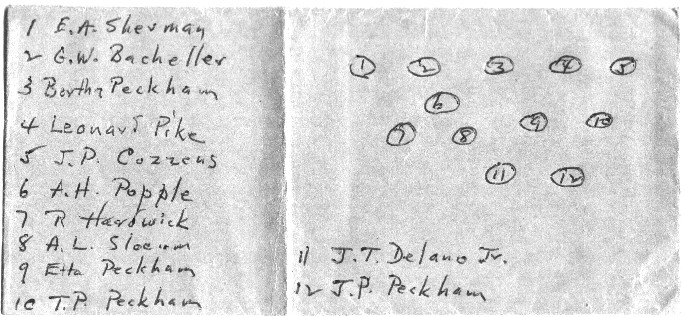 1 E.A. Sherman
2 G.W. Bacheller
3 Bertha Peckham
4 Leonard Pike
5 J.P. Cozzens
6 A.H. Popple
7 R Hardwick
8 A.L. Slocum
9 Etta Peckham
10 T.P. Peckham
1 2 3 4 5
6
7 8 9 10
11 12
11 J.T. Delano Jr.
12 J.P. Peckham